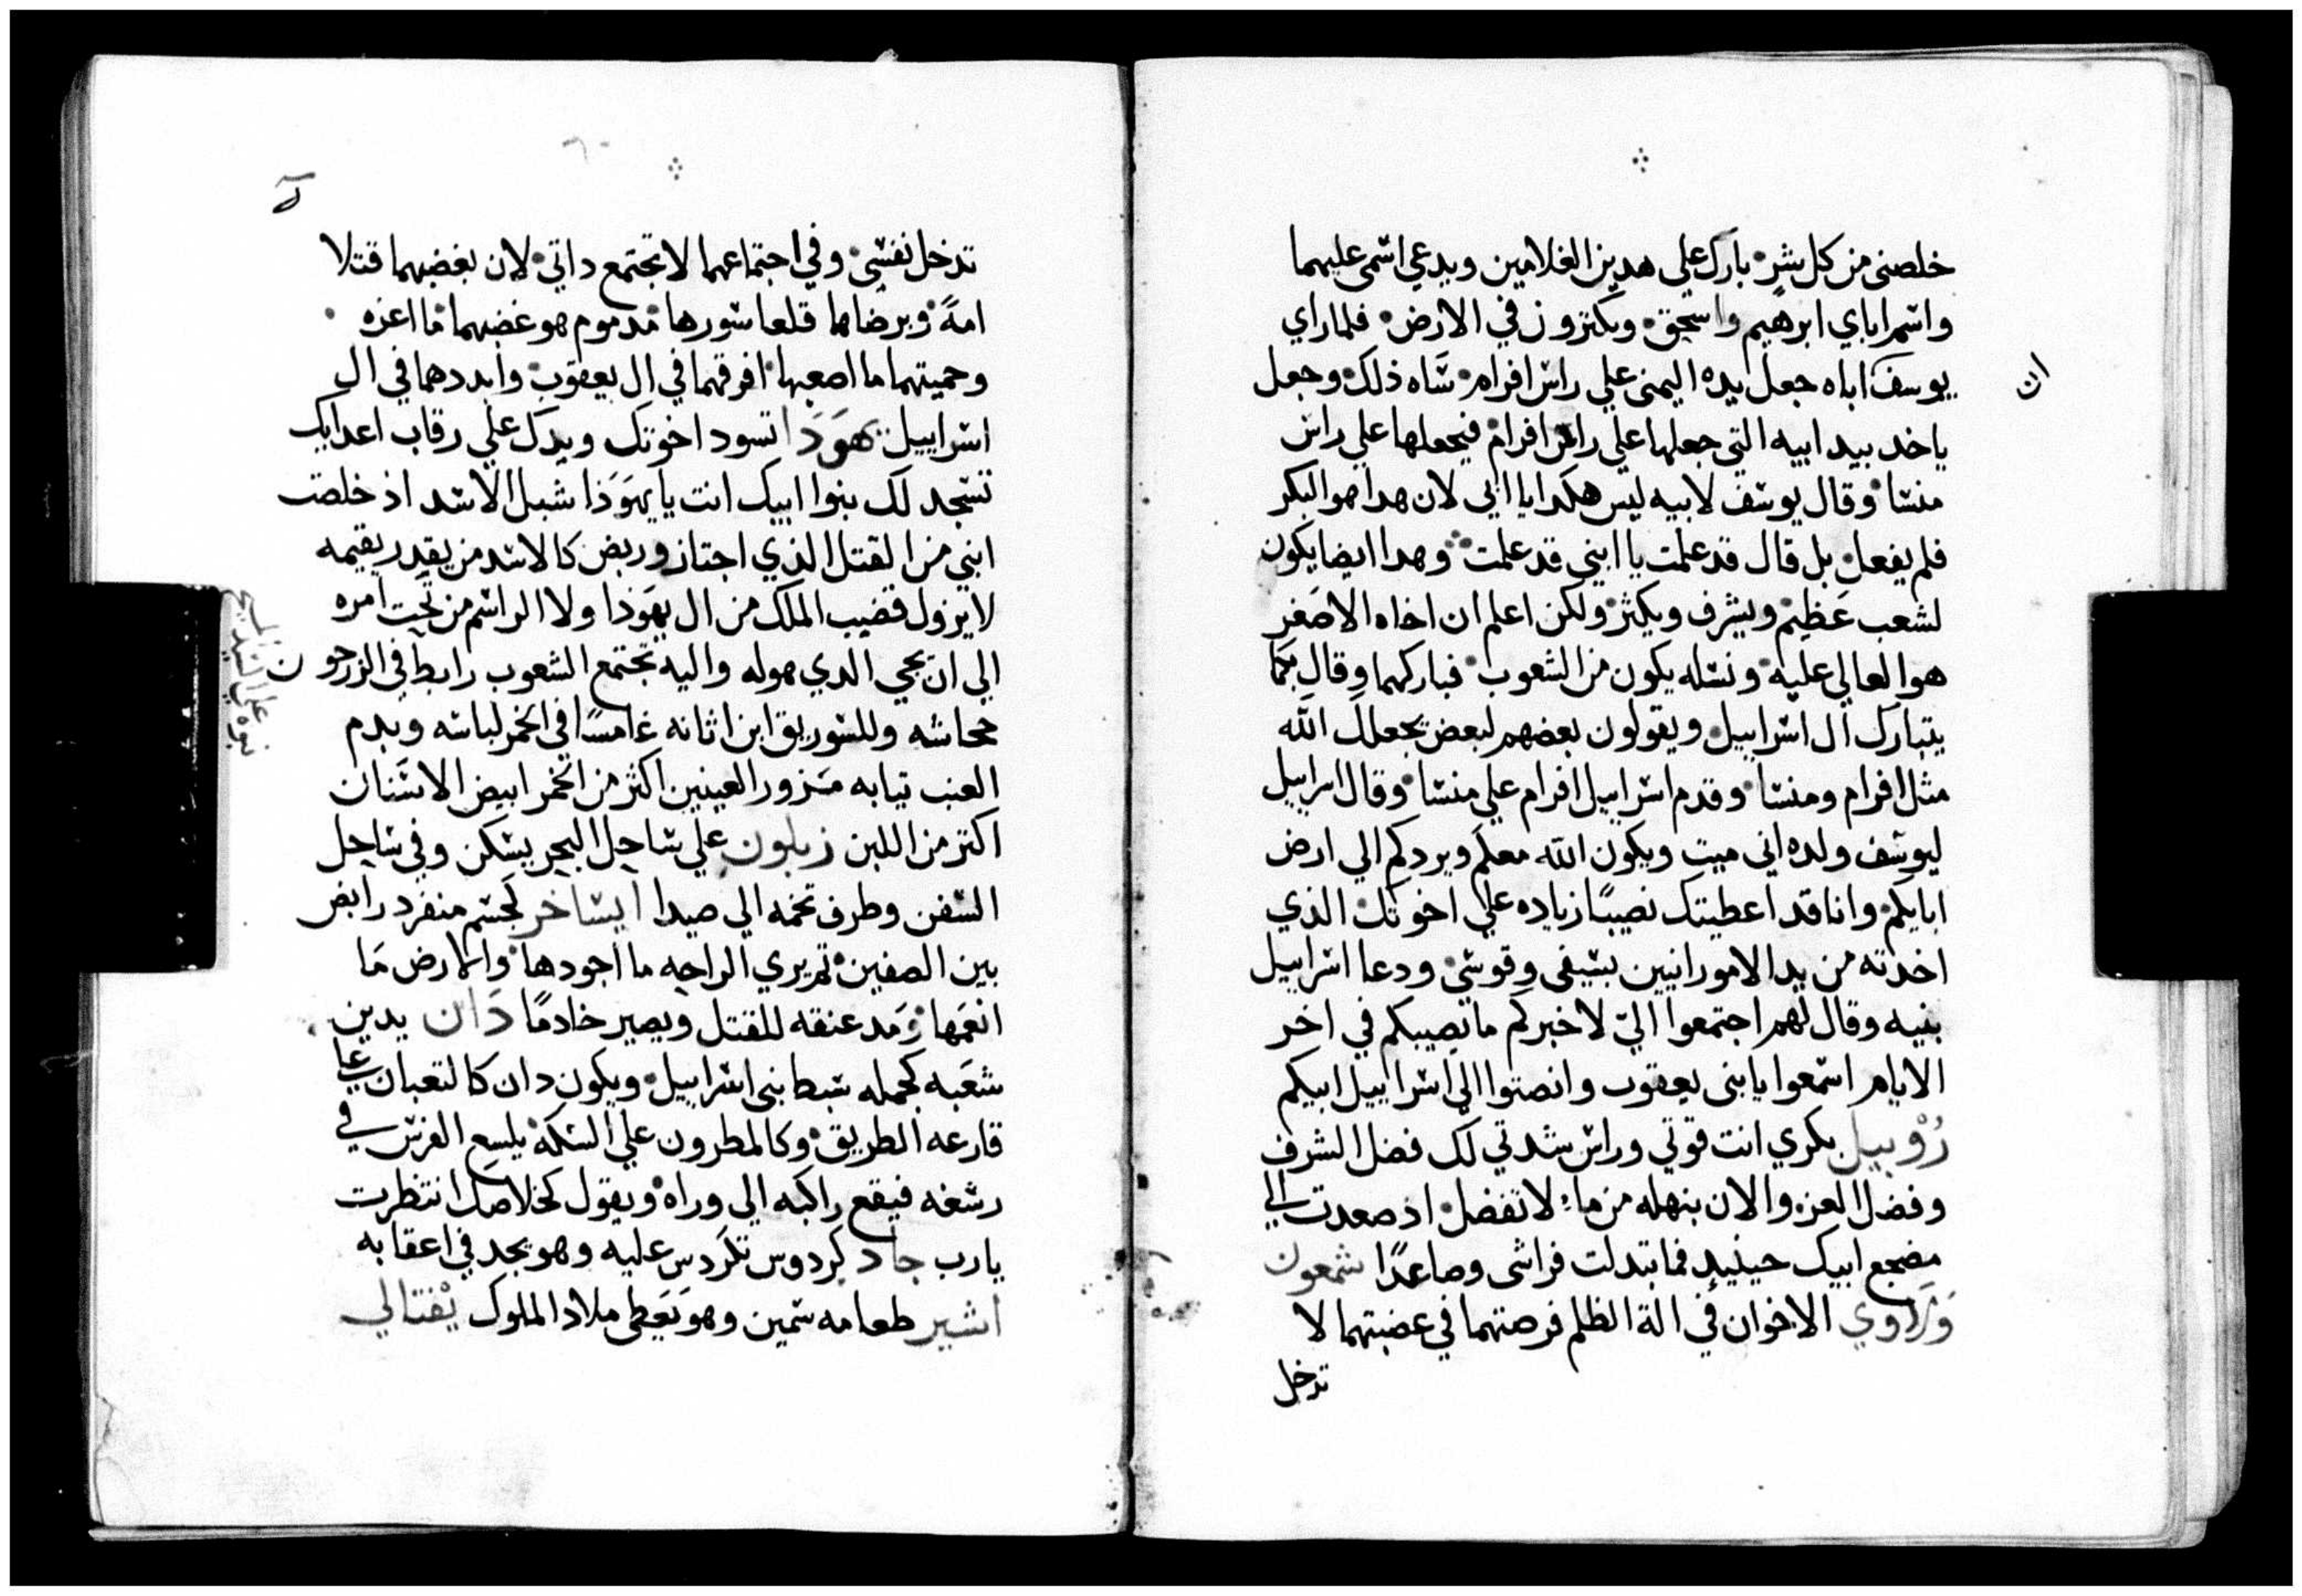 خلصنى من كل شر بارك على هدين الغلامين ويدعي اسمى عليهما
واسم اباي ابرهيم واسحق ويكثرون في الارض فلما راي
ان
يوسف اباه جعل يده اليمنى علي راس افرام شاه ذلك وجعل
ياخد بيد ابيه التي جعلها علي راس افرام فيجعلها علي راس
منسا وقال يوسف لابيه ليس هكدا يا ابي لان هدا هو البكر
فلم يفعل بل قال قد علمت يا ابنى قد علمت وهدا ايضا يكون
لشعب عظيم ويشرف ويكثر ولكن اعلم ان اخاه الاصغر
هو العالي عليه ونسله يكون من الشعوب فباركهما وقال بكما
يتبارك ال اسراييل ويقولون بعضهم لبعض يجعلك الله
مثل افرام ومنسا وقدم اسراييل افرام علي منسا وقال اسراييل
ليوسف ولده اني ميت ويكون الله معكم ويردكم الي ارض
ابايكم وانا قد اعطيتك نصيبًا زياده علي اخوتك الذي
اخدته من يد الامورانيين بسيفى وقوسي ودعا اسراييل
بنيه وقال لهم اجتمعوا اليّ لاخبركم ما يصيبكم في اخر
الايام اسمعوا يا بنى يعقوب وانصتوا الي اسراييل ابيكم
رُوبيل بكري انت قوتي وراس شدتي لك فضل الشرف
وفضل العز والان بنهله من ماء لا تفضل اد صعدت الي
مضجع ابيك حينيد فما بتدلت فراشى وصاعدًا شمعون
ولاوي الاخوان في الة الظلم فرصتهما في عضبتهما لا
تدخل
تدخل نفسي وفي اجتماعهما لا تجتمع داتي لان بغضبهما قتلا
امةً وبرضاهما قلعا سورها مدموم هو غضبهما ما اعزه
وحميتهما ما اصعبها افرقهما في ال يعقوب وابددهما في ال
اسراييل يهودا تسود اخوتك ويدك علي رقاب اعدايك
تسجد لك بنوا ابيك انت يا يهوذا شبل الاسد اذ خلصت
ابني من القتل الذي اجتاز وربض كالاسد من يقدر يقيمه
لا يزول قضيب الملك من ال يهوذا ولا الراسم من تحت امره
الي ان يجي الدي هو له واليه تجتمع الشعوب رابط في الزرجون
جحاشه وللسوريق ابن اتانه غامسًا في الخمر لباسه وبدم
العنب تيابه متزور العينين اكثر من الخمر ابيض الاسنان
اكتر من اللبن زبلون علي ساحل البحر يسكن وفي ساحل
السفن وطرف تخمه الي صيدا ايساخر لجسم منفرد رابض
بين الصفين تمريري الراحه ما اجودها والارض ما
انعمها ومد عنقه للقتل ويصير خادمًا دان يدين
شعبه كجمله سبط بنى اسراييل ويكون دان كالتعبان علي
قارعه الطريق وكالمطرون علي السكة يلسع الفرس في
رسغه فيقع راكبه الي وراه ويقول لخلاصك انتظرت
يا رب جاد كردوس تكردس عليه وهو يجد في اعقابه
اشير طعامه سمين وهو يعطى ملاد الملوك يفتالي